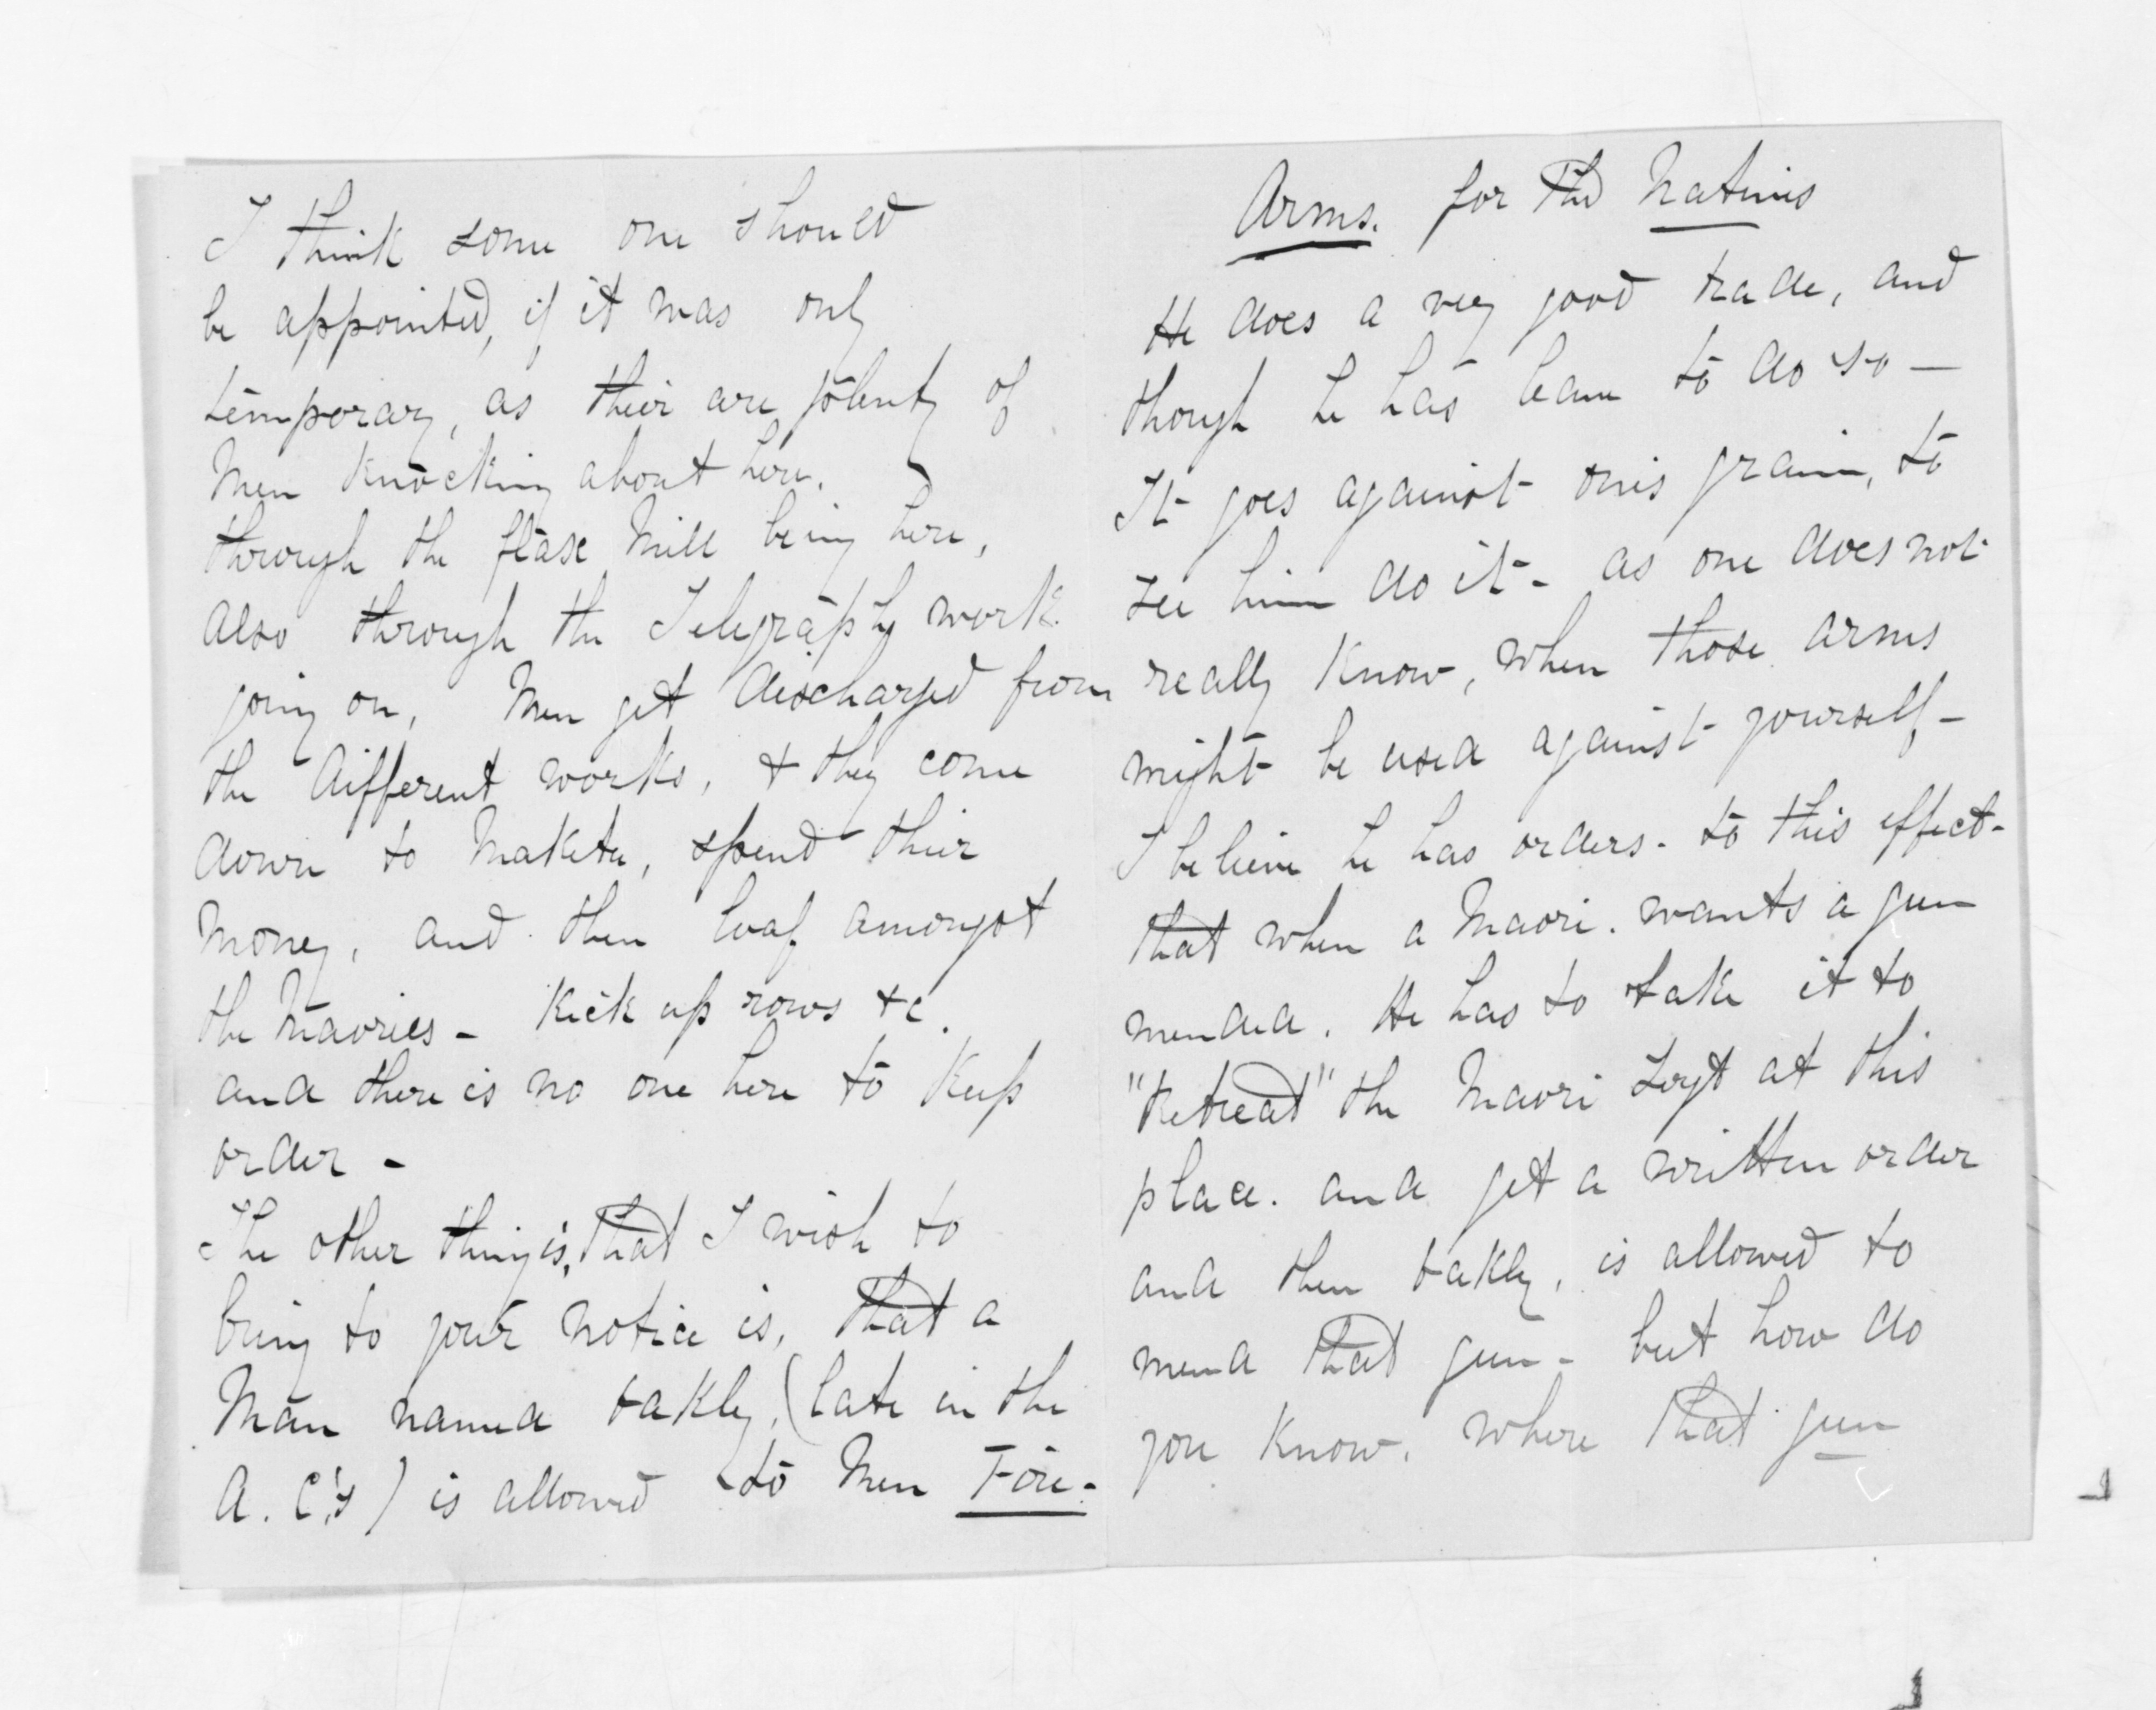 I think some one should
be appointed, if it was only
temporary, as their are plenty of
Men Knocking about here.
through the flax Mill being here,
Also through the Telegraph work
going on, Men get discharged from
the different works, & they come
down to Maketu, spend their
Money, and then loaf amongst
the Maories - Kick up rows &c.
and there is no one here to Keep
order -
The other thing is, that I wish to
bring to your notice is, that a
Man named Oakley, (late in the
A. C.'s) is allowed to Men Fire-
Arms. for the Natives
He does a very good trade, and
though he has leave to do so -
It goes against ones grain, to
see him do it - as one does not
really Know, when those arms
might be used against yourself -
I believe he has orders - to this effect -
that when a Maori. wants a gun
mended. He has to take it to
"Retreat" the Maori Sergt at this
place. and get a written order
and then Oakley, is allowed to
mend that gun - but how do
you Know. where that gun